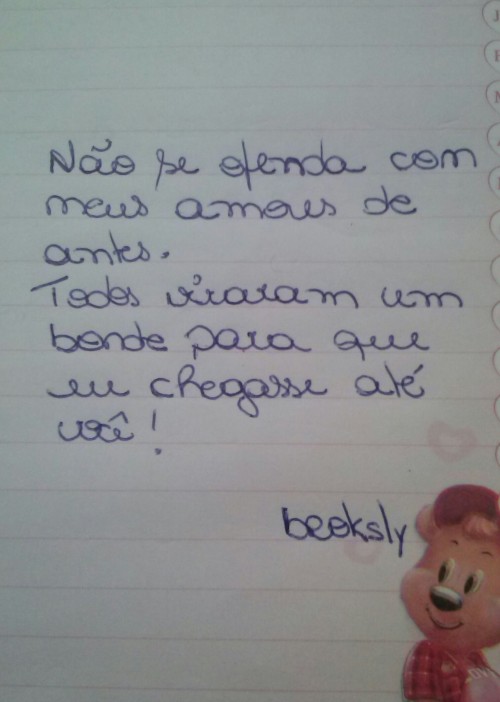 Não se ofenda com
meus amores de
antes.
Todos viraram um
bonde para que
eu chegasse até
você!
beeksly